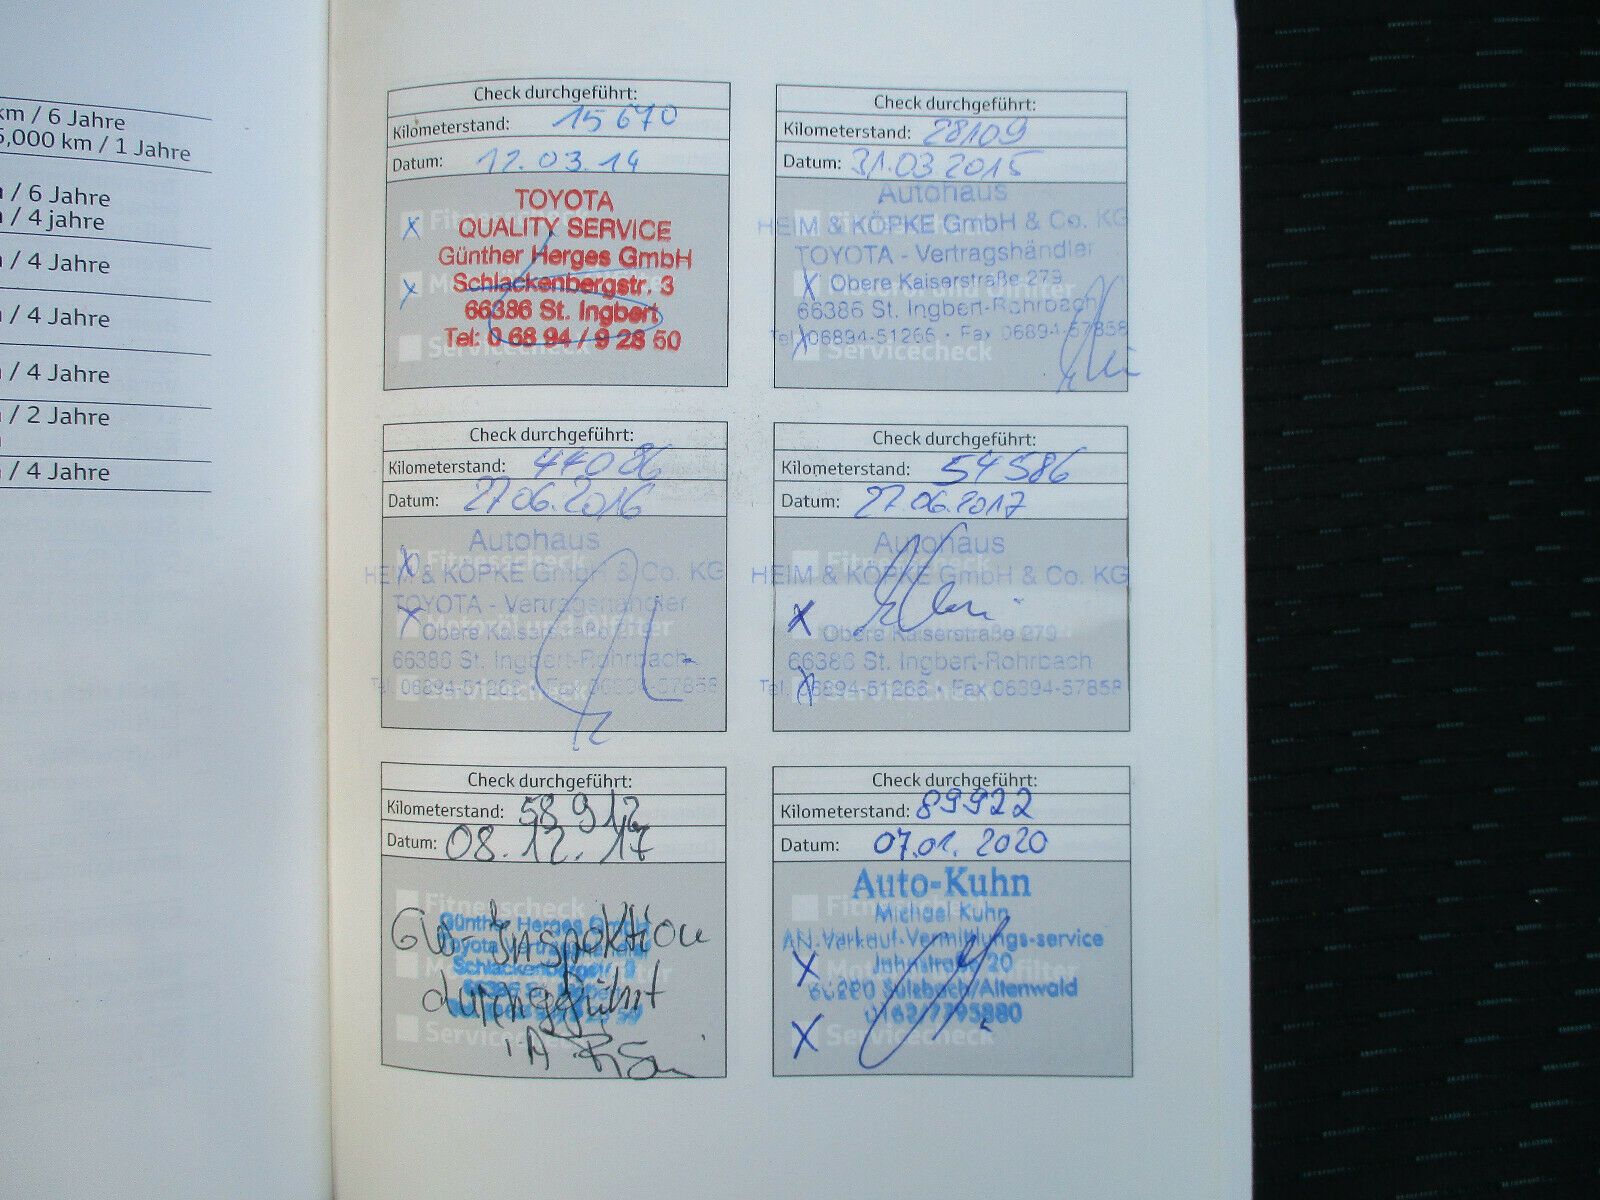 km / 6 Jahre
5,000 km / 1 Jahre
/ 6 Jahre
/ 4 jahre
/ 4 Jahre
/ 4 Jahre
/ 4 Jahre
/ 2 Jahre
/ 4 Jahre
Check durchgeführt:
Kilometerstand: 15 670
Datum: 12.03.14
TOYOTA
QUALITY SERVICE
Günther Herges GmbH
Schlackenbergstr. 3
66386 St. Ingbert
Tel: 0 68 94 / 9 28 50
Servicecheck
Check durchgeführt:
Kilometerstand: 28109
Datum: 31.03 2015
Autohaus
HEIM & KÖPKE GmbH & Co. KG
TOYOTA - Vertragshändler
Obere Kaiserstraße 279
66386 St. Ingbert-Rohrbach
Tel. 06894-51266 · Fax 06894-57858
Servicecheck
Check durchgeführt:
Kilometerstand: 44086
Datum: 27.06.2016
Autohaus
Fitnesscheck
HEIM & KÖPKE GmbH & Co. KG
TOYOTA - Vertragshändler
Motoröl und Ölfilter
Obere Kaiserstraße
66386 St. Ingbert-Rohrbach
Tel. 06894-51266 · Fax 06894-57858
Servicecheck
Check durchgeführt:
Kilometerstand: 54586
Datum: 27.06.2017
Autohaus
Fitnesscheck
HEIM & KÖPKE GmbH & Co. KG
Obere Kaiserstraße 279
66386 St. Ingbert-Rohrbach
Tel. 06894-51266 · Fax 06894-57858
Servicecheck
Check durchgeführt:
Kilometerstand: 58 912
Datum: 08.12.17
Fitnesscheck
Günther Herges GmbH
GW-Inspektion
durchgeführt
Servicecheck
i.A
Check durchgeführt:
Kilometerstand: 89922
Datum: 07.01.2020
Auto-Kuhn
Fitnesscheck
Michael Kuhn
AN-Verkauf-Vermittlungs-service
Jahnstraße 20
Sulzbach/Altenwald
Servicecheck